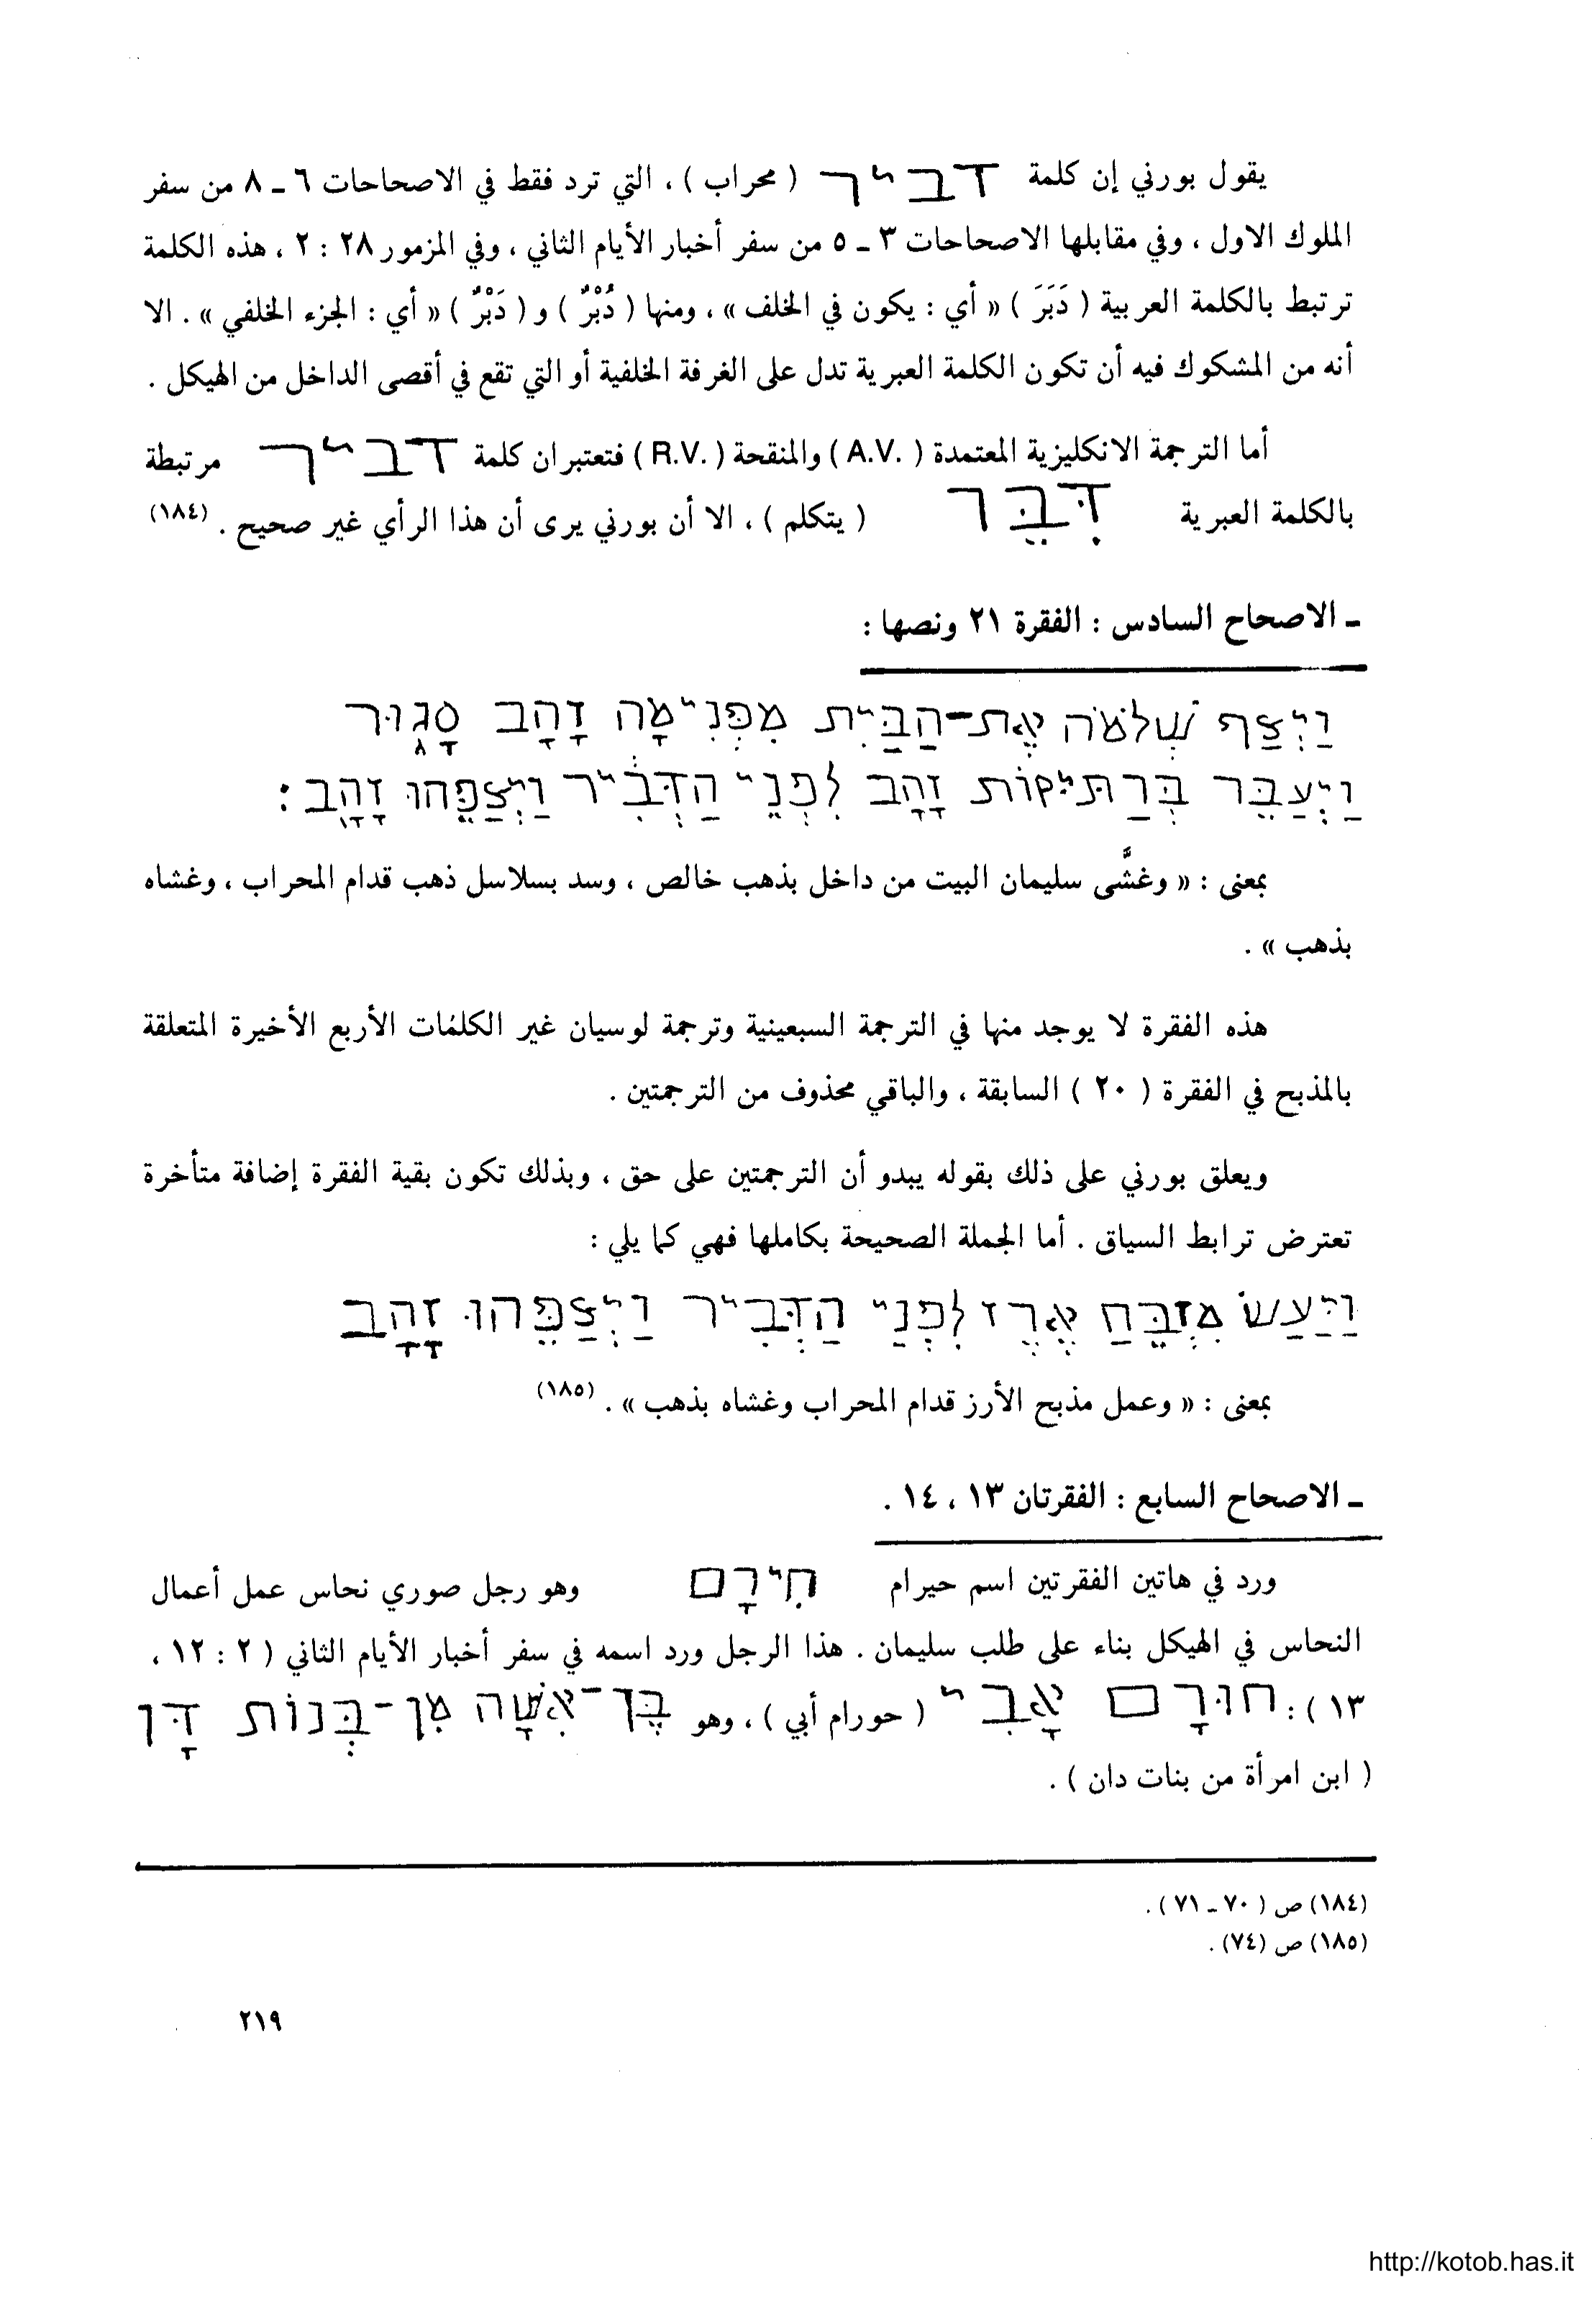 يقول بورني إن كلمة דביר ( محراب ) ، التي ترد فقط في الاصحاحات ٦ ـ ٨ من سفر
الملوك الاول ، وفي مقابلها الاصحاحات ٣ ـ ٥ من سفر أخبار الأيام الثاني ، وفي المزمور ٢٨ : ٢ ، هذه الكلمة
ترتبط بالكلمة العربية ( دَبَرَ ) « أي : يكون في الخلف » ، ومنها ( دُبْرٌ ) و ( دَبْرٌ ) « أي : الجزء الخلفي » . الا
أنه من المشكوك فيه أن تكون الكلمة العبرية تدل على الغرفة الخلفية أو التي تقع في أقصى الداخل من الهيكل .
أما الترجمة الانكليزية المعتمدة ( A.V. ) والمنقحة ( R.V. ) فتعتبران كلمة דביר مرتبطة
بالكلمة العبرية דִּבֵּר ( يتكلم ) ، الا أن بورني يرى أن هذا الرأي غير صحيح . (١٨٤)
ـ الاصحاح السادس : الفقرة ٢١ ونصها :
וַיְצַף שְׁלֹמֹה אֶת־הַבַּיִת מִפְּנִימָה זָהָב סָגוּר
וַיְעַבֵּר בְּרַתִּיקוֹת זָהָב לִפְנֵי הַדְּבִיר וַיְצַפֵּהוּ זָהָב :
بمعنى : « وغشَّى سليمان البيت من داخل بذهب خالص ، وسد بسلاسل ذهب قدام المحراب ، وغشاه
بذهب » .
هذه الفقرة لا يوجد منها في الترجمة السبعينية وترجمة لوسيان غير الكلمات الأربع الأخيرة المتعلقة
بالمذبح في الفقرة ( ٢٠ ) السابقة ، والباقي محذوف من الترجمتين .
ويعلق بورني على ذلك بقوله يبدو أن الترجمتين على حق ، وبذلك تكون بقية الفقرة إضافة متأخرة
تعترض ترابط السياق . أما الجملة الصحيحة بكاملها فهي كما يلي :
וַיַּעַשׂ מִזְבֵּחַ אֶרֶז לִפְנֵי הַדְּבִיר וַיְצַפֵּהוּ זָהָב
بمعنى : « وعمل مذبح الأرز قدام المحراب وغشاه بذهب » . (١٨٥)
ـ الاصحاح السابع : الفقرتان ١٣ ، ١٤ .
ورد في هاتين الفقرتين اسم حيرام חִירָם وهو رجل صوري نحاس عمل أعمال
النحاس في الهيكل بناء على طلب سليمان . هذا الرجل ورد اسمه في سفر أخبار الأيام الثاني ( ٢ : ١٢ ،
١٣ ) : חוּרָם אָבִי ( حورام أبي ) ، وهو בֶּן־אִשָּׁה מִן־בְּנוֹת דָּן
( ابن امرأة من بنات دان ) .
(١٨٤) ص ( ٧٠ ـ ٧١ ) .
(١٨٥) ص (٧٤) .
٢١٩
http://kotob.has.it